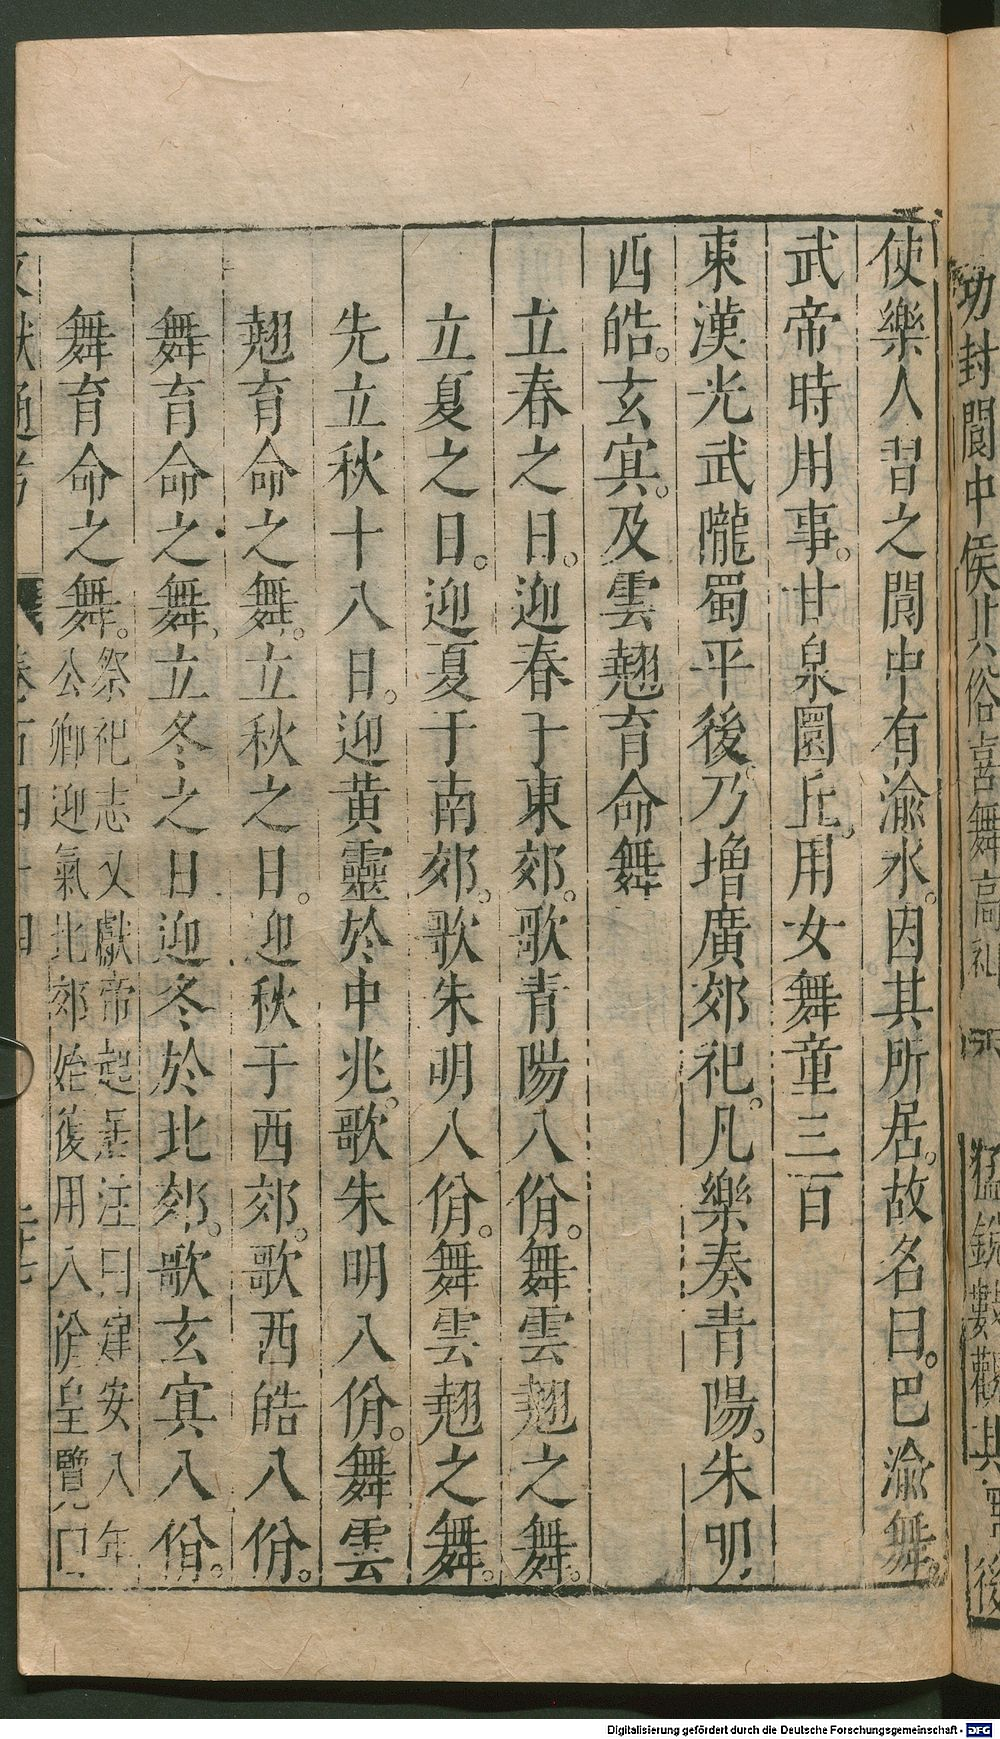 功封閬中侯其俗喜舞高祖
猛銳數觀其
後
使樂人習之閬中有渝水。因其所居。故名曰。巴渝舞。
武帝時用事。甘泉圜丘。用女舞童三百
東漢光武隴蜀平後。乃增廣郊祀。凡樂奏青陽。朱明
西皓。玄冥。及雲翹育命舞
立春之日。迎春于東郊。歌青陽八佾。舞雲翹之舞。
立夏之日。迎夏于南郊。歌朱明八佾。舞雲翹之舞。
先立秋十八日。迎黃靈於中兆。歌朱明八佾。舞雲
翹育命之舞。立秋之日。迎秋于西郊。歌西皓八佾。
舞育命之舞。立冬之日迎冬於北郊。歌玄冥八佾。
舞育命之舞。
祭祀志又獻帝起居注曰建安八年
公卿迎氣北郊始復用八佾皇覽曰
文獻通考
卷百四十四
Digitalisierung gefördert durch die Deutsche Forschungsgemeinschaft - DFG